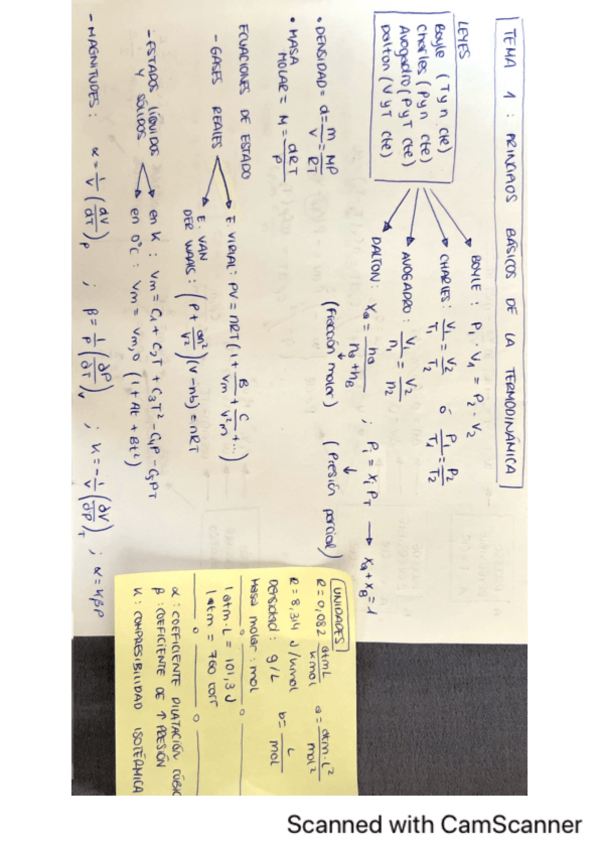 TEMA 1 : PRINCIPIOS BÁSICOS DE LA TERMODINÁMICA
LEYES
Boyle (T y n cte)
Charles (P y n cte)
Avogadro (P y T cte)
Dalton (V y T cte)
BOYLE : P₁ · V₁ = P₂ · V₂
CHARLES : V₁/T₁ = V₂/T₂ ó P₁/T₁ = P₂/T₂
AVOGADRO : V₁/n₁ = V₂/n₂
DALTON : Xa = na/(na+nB) ; Pi = Xi PT → Xa + XB = 1
(Fracción molar) (Presión parcial)
• DENSIDAD = d = m/V = MP/RT
• MASA MOLAR = M = dRT/P
ECUACIONES DE ESTADO
- GASES REALES
E. VIRIAL : PV = nRT (1 + B/Vm + C/V²m + ...)
E. VAN DER WAALS : (P + an²/V²)(V - nb) = nRT
- ESTADOS LÍQUIDOS Y SÓLIDOS
en K : Vm = C₁ + C₂T + C₃T² - C₄P - C₅PT
en 0°C : Vm = Vm,0 (1 + At + Bt²)
- MAGNITUDES : α = 1/V (dV/dT)P ; β = 1/P (∂P/∂T)V ; K = -1/V (∂V/∂P)T ; α = KβP
UNIDADES
R = 0,082 atmL/Kmol a = atm·L²/mol²
R = 8,314 J/Kmol b = L/mol
Densidad : g/L
Masa molar : mol
1 atm·L = 101,3 J
1 atm = 760 torr
α : COEFICIENTE DILATACIÓN
β : COEFICIENTE DE ↑ PRESIÓN
K : COMPRESIBILIDAD ISOTÉRMICA
Scanned with CamScanner